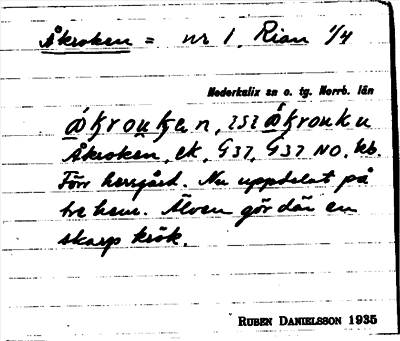 Åkroken = nr 1, Rian 1/4
Nederkalix sn o. tg. Norrb. län
Åkroken, ek, G37, G37 NO. beb.
Förr herrgård. Nu uppdelat på
tre hem. Älven gör där en
skarp krök.
RUBEN DANIELSSON 1935